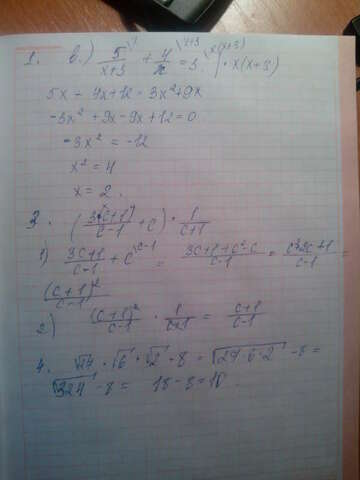 1. в.) 5/(x+3) \x + 4/x \x+3 = 3 \x(x+3) | · x(x+3)
5x - 4x+12 = 3x²+9x
-3x² + 9x - 9x + 12 = 0
-3x² = -12
x² = 4
x = 2.
3. ((3c+1)/(c-1) + c) · 1/(c+1)
1) (3c+1)/(c-1) + c \c-1 = (3c+1+c²-c)/(c-1) = (c²2c+1)/(c-1) =
(c+1)²/(c-1)
2) (c+1)²/(c-1) · 1/(c+1) = (c+1)/(c-1)
4. √24 · √6 · √2 - 8 = √(24·6·2) - 8 =
√324 - 8 = 18 - 8 = 10